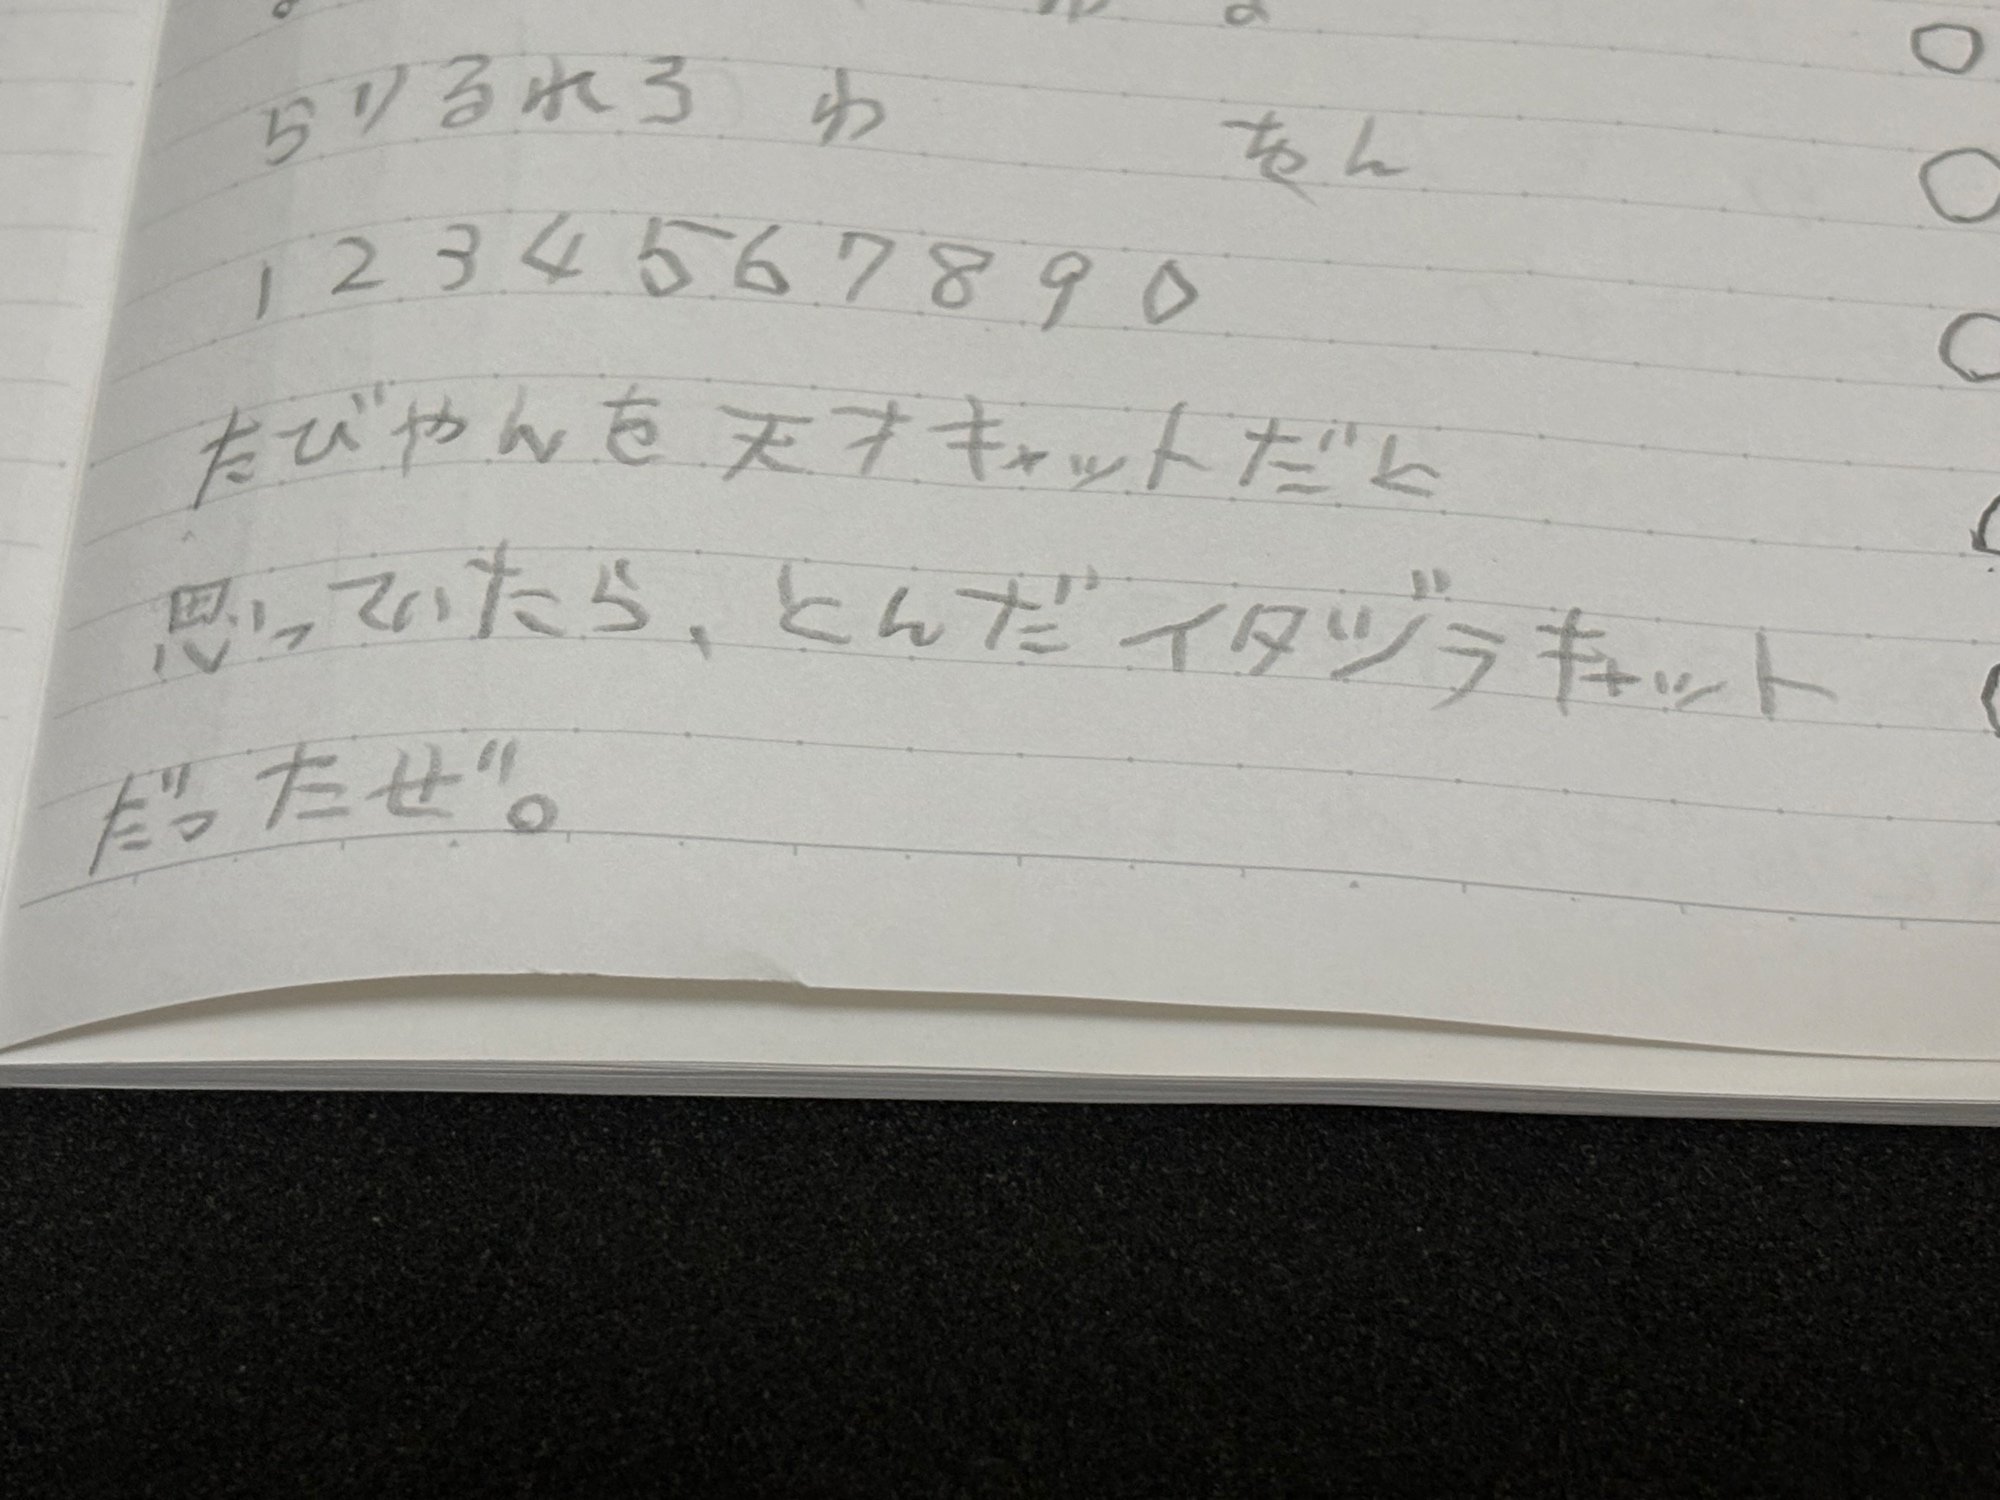 らりるれろ わ をん
1 2 3 4 5 6 7 8 9 0
たびやんを天才キャットだと
思っていたら、とんだイタヅラキャット
だったぜ。